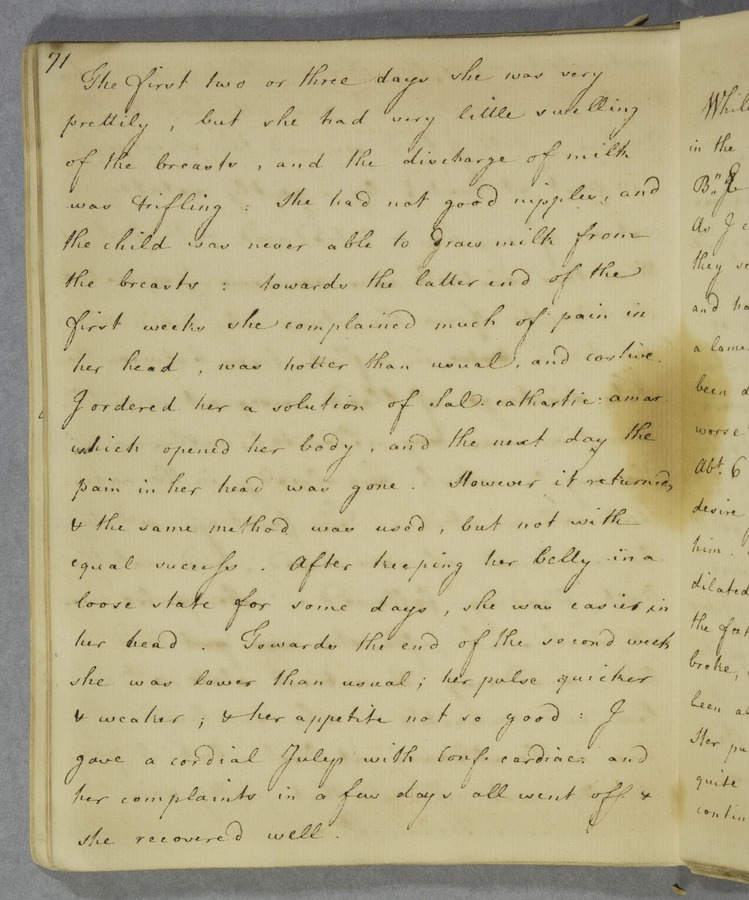 71
The first two or three days she was very
prettily, but she had very little swelling
of the breasts, and the discharge of milk
was trifling: She had not good nipples, and
the child was never able to draw milk from
the breasts: towards the latter end of the
first weeks she complained much of pain in
her head, was hotter than usual, and costive.
I ordered her a solution of Sal. cathartic: amar
which opened her body, and the next day the
pain in her head was gone. However it returned,
& the same method was used, but not with
equal success. After keeping her belly in a
loose state for some days, she was easier in
her head. Towards the end of the second week
she was lower than usual; her pulse quicker
& weaker; & her appetite not so good: I
gave a cordial Julep with Conf. cardiac: and
her complaints in a few days all went off &
she recovered well.
While
in the
Bn
As I
they
and ha
a lame
been d
worse
Abt. 6
desire
him.
dilated
the
broke,
been
Her pu
quite
contin